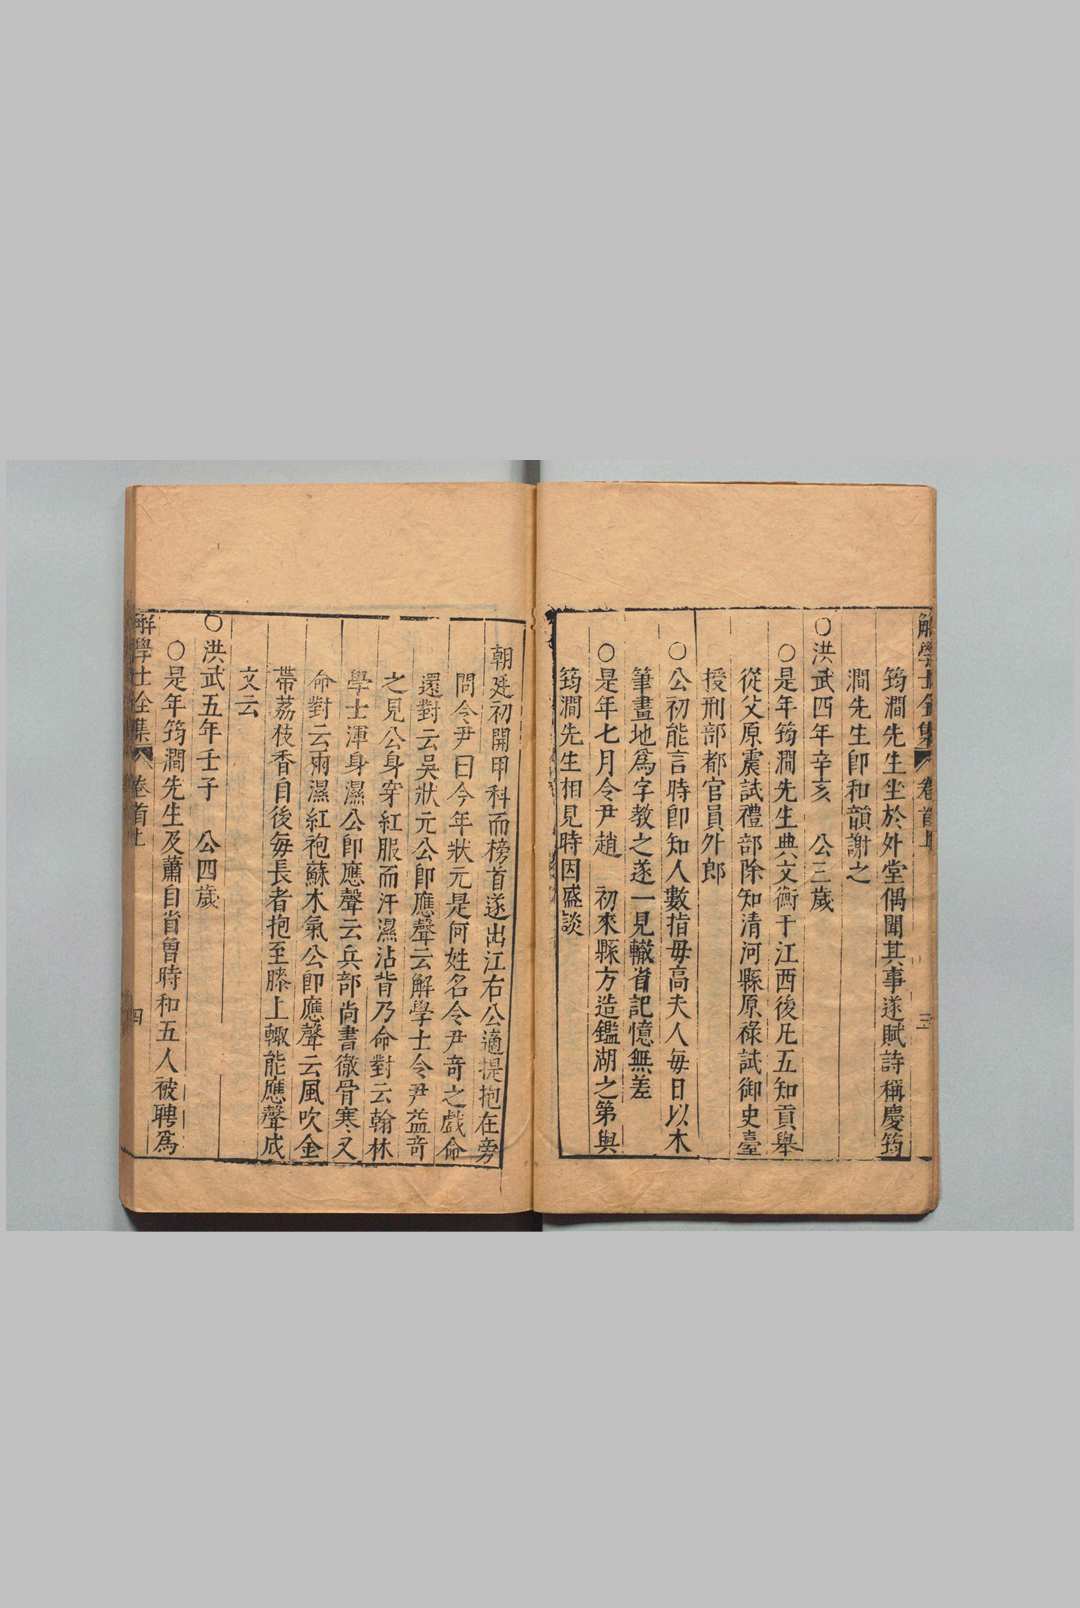 解學士全集 卷首上 三
筠澗先生坐於外堂偶聞其事遂賦詩稱慶筠
澗先生卽和韻謝之
○洪武四年辛亥 公三歲
○是年筠澗先生典文衡于江西後凡五知貢舉
從父原震試禮部除知清河縣原祿試御史臺
授刑部都官員外郎
○公初能言時卽知人數指毋高夫人每日以木
筆畫地爲字教之遂一見轍皆記憶無差
○是年七月令尹趙 初來縣方造鑑湖之第與
筠澗先生相見時因盛談
朝廷初開甲科而榜首遂出江右公適提抱在旁
問令尹曰今年狀元是何姓名令尹奇之戲命
還對云吳狀元公卽應聲云解學士令尹益奇
之見公身穿紅服而汗濕沾背乃命對云翰林
學士渾身濕公卽應聲云兵部尚書徹骨寒又
命對云雨濕紅袍蘇木氣公卽應聲云風吹金
帶荔枝香自後每長者抱至膝上輙能應聲成
文云
○洪武五年壬子 公四歲
○是年筠澗先生及蕭自省曾時和五人被聘爲
解學士全集 卷首上 四